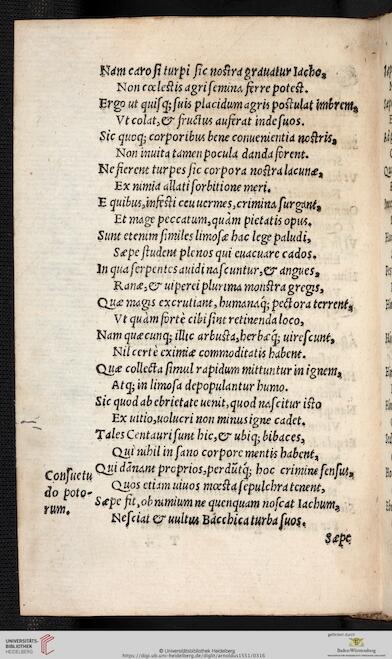 Nam caro si turpi sic nostra grauatur Iacho,
Non cœlestis agri semina ferre potest.
Ergo ut quisq; suis placidum agris postulat imbrem,
Vt colat, & fructus auferat inde suos.
Sic quoq; corporibus bene conuenientia nostris,
Non inuita tamen pocula danda forent.
Ne fierent turpes sic corpora nostra lacunæ,
Ex nimia allati sorbitione meri.
E quibus, infesti ceu uermes, crimina surgant,
Et mage peccatum, quàm pietatis opus.
Sunt etenim similes limosæ hac lege paludi,
Sæpe student plenos qui euacuare cados.
In qua serpentes auidi nascuntur, & angues,
Ranæ, & uiperei plurima monstra gregis,
Quæ magis excrutiant, humanaq; pectora terrent,
Vt quàm fortè cibi sint retinenda loco,
Nam quæcunq; illic arbusta, herbæq; uirescunt,
Nil certè eximiæ commoditatis habent.
Quæ collecta simul rapidum mittuntur in ignem,
Atq; in limosa depopulantur humo.
Sic quod ab ebrietate uenit, quod nascitur isto
Ex uitio, uolucri non minus igne cadet.
Tales Centauri sunt hic, & ubiq; bibaces,
Qui nihil in sano corpore mentis habent,
Qui dānant proprios, perdūtq; hoc crimine sensus,
Quos etiam uiuos mœsta sepulchra tenent,
Consuetu
do poto-
rum.
Sæpe fit, ob nimium ne quenquam noscat Iachum,
Nesciat & uultus Bacchica turba suos.
Sæpe
UNIVERSITÄTS-
BIBLIOTHEK
HEIDELBERG
https://digi.ub.uni-heidelberg.de/diglit/arnoldus1551/0316
© Universitätsbibliothek Heidelberg
gefördert durch
Baden-Württemberg